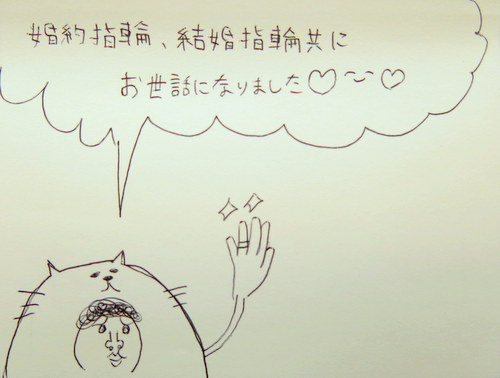 婚約指輪、結婚指輪共に
お世話になりました♡〜♡